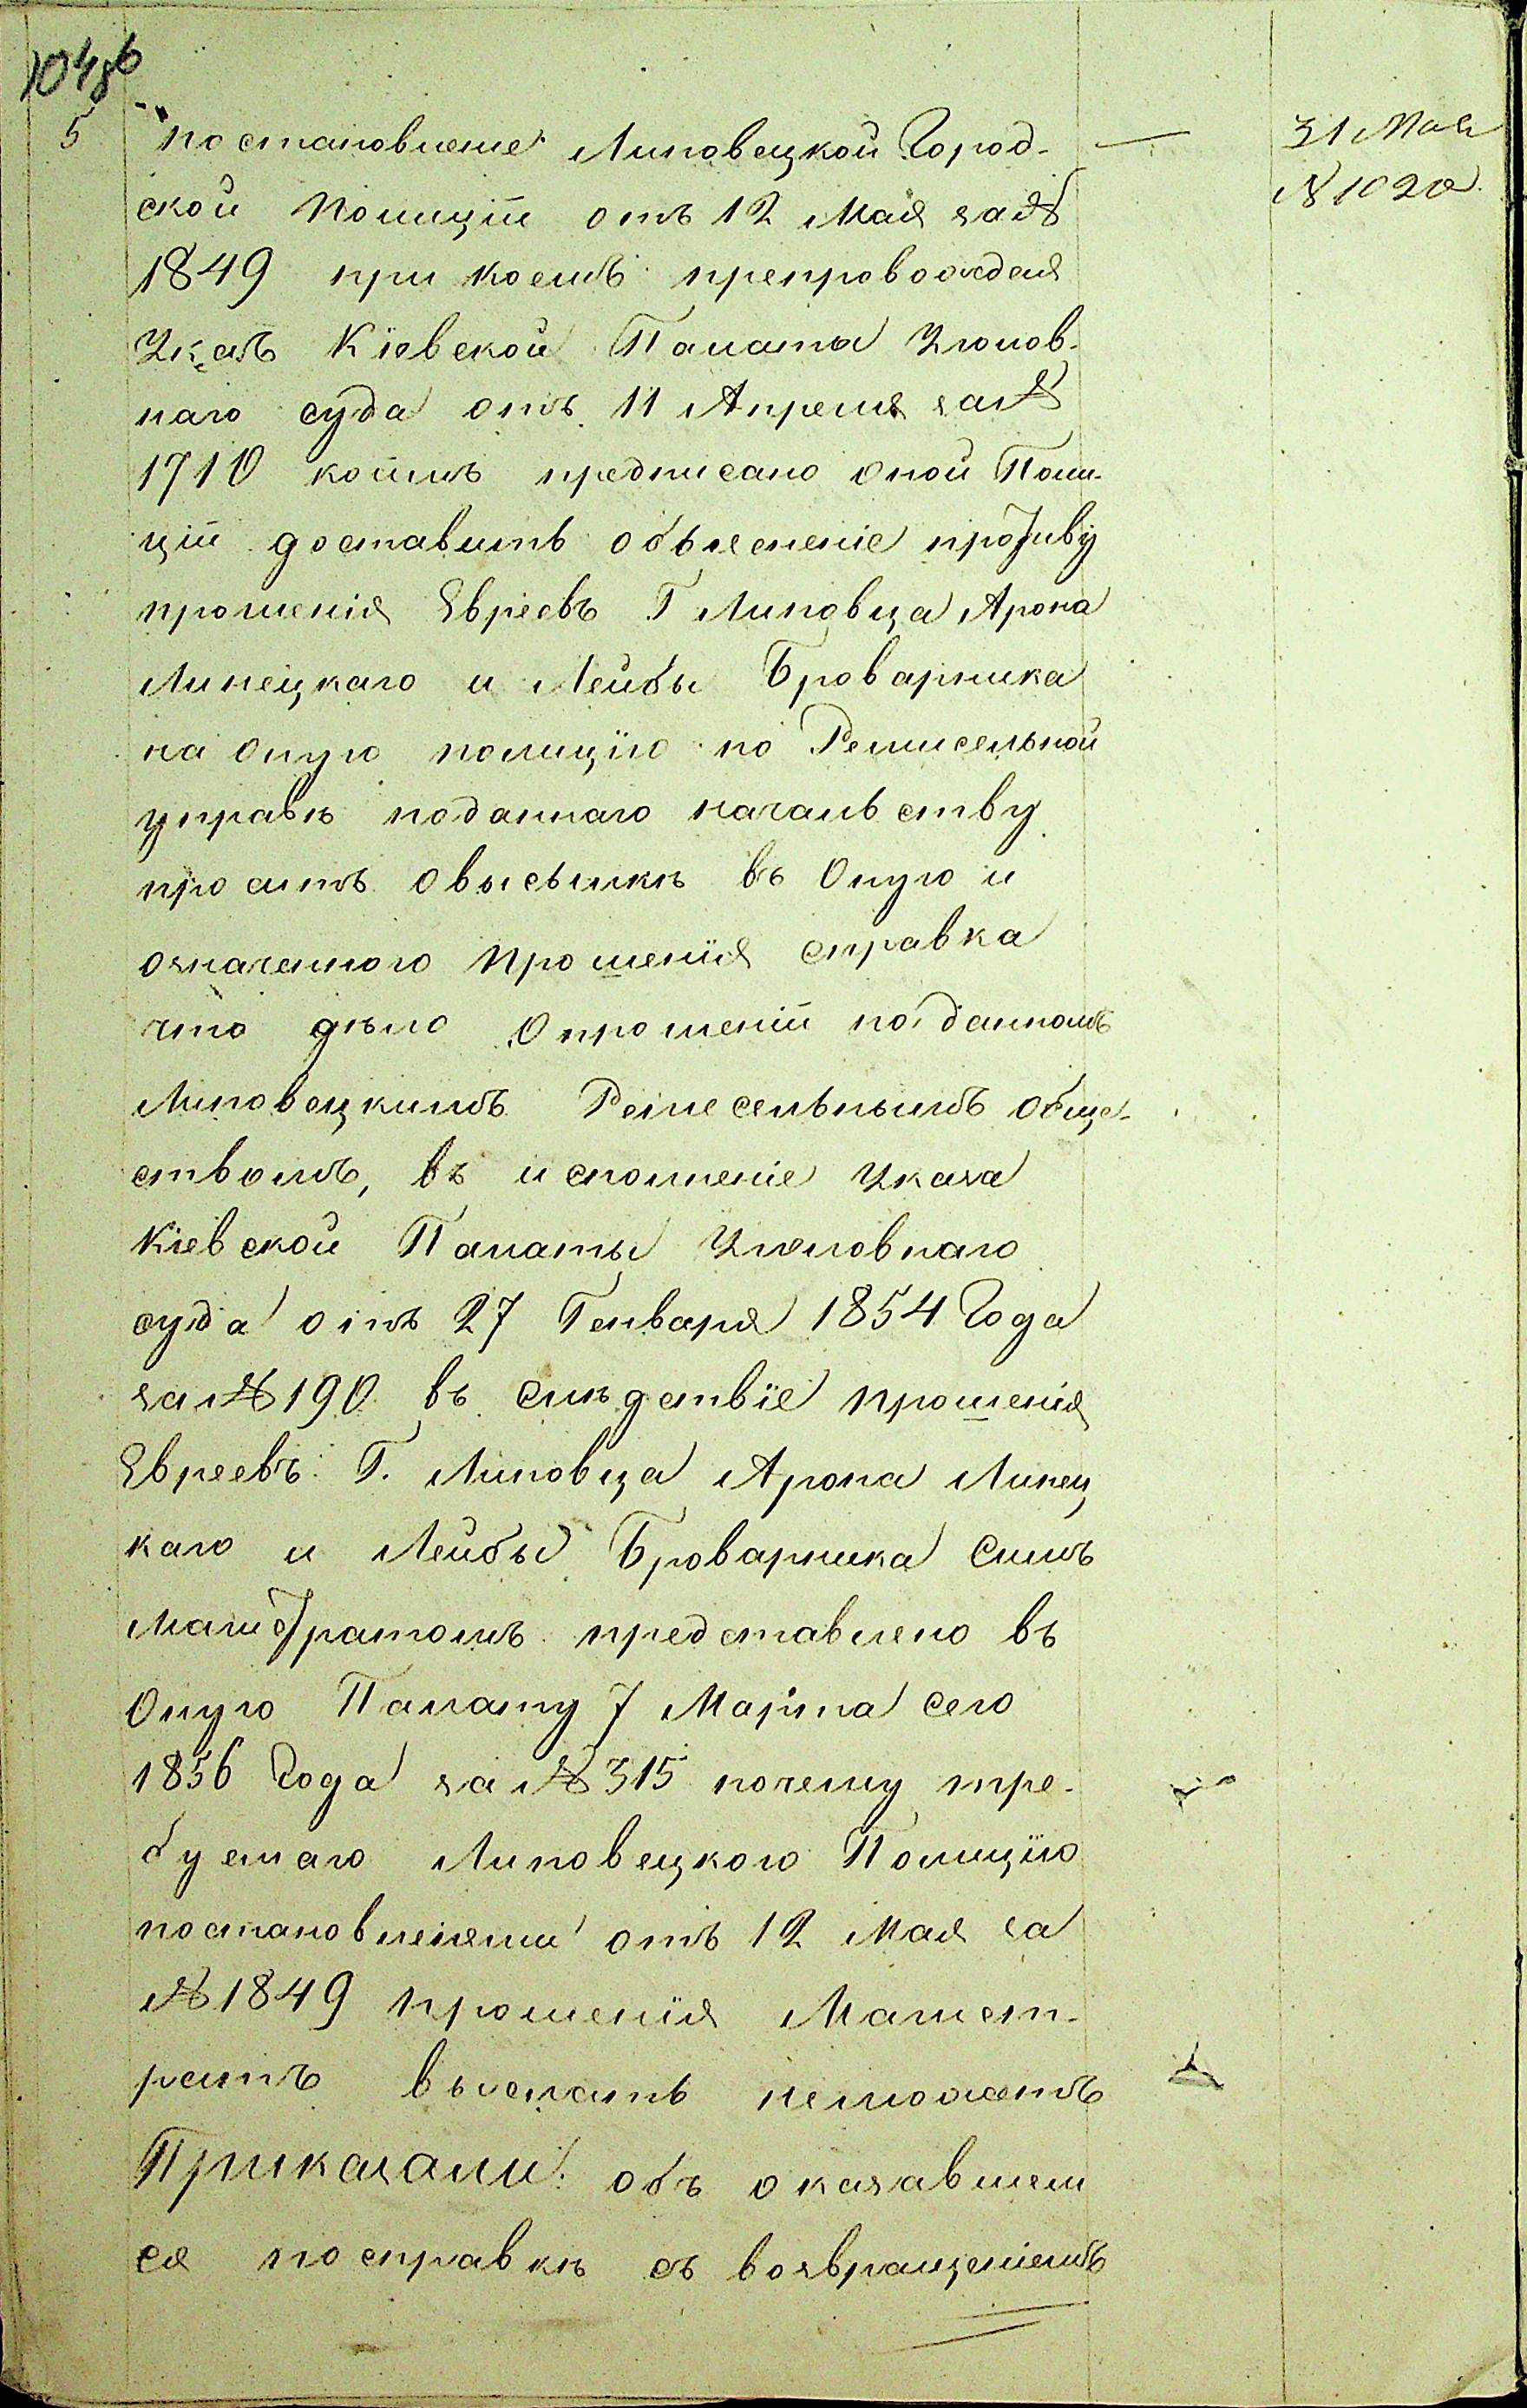 5 постановление Липовецкой Город- — 31 Мая
ской Полиціи отъ 12 Мая за № № 1020
1849 при коемъ препровождая
Указъ Кіевской Палаты Уголов-
наго суда отъ 11 Апреля за №
1710 коимъ предписано оной Поли-
ціи доставить объясненіе противу
прошенія Евріевъ Г Липовца Арона
Липецкаго и Лейбы Броварника
на оную полицію по Ремисельной
управѣ поданнаго началъству
проситъ овысылкѣ въ Оную и
означенного прошенія справка
что дѣло Опрошеніи поданномъ
Липовецкимъ Ремесельнымъ обще-
ствомъ, въ исполненіе Указа
Кіевской Палаты Уголовнаго
суда отъ 27 Генваря 1854 Года
за № 190 въ слѣдствіе прошенія
Евреевъ Г. Липовца Арона Липец
каго и Лейбы Броварника Симъ
Магистратомъ представлено въ
Оную Палату 7 Марта сего
1856 Года за № 315 почему тре-
буемаго Липовецкого Полицію
постановлениемъ отъ 12 Мая за
№ 1849 прошенія Магист-
ратъ выслать неможетъ
Приказали: объ оказавшем
ся посправкѣ съ возвращеніемъ